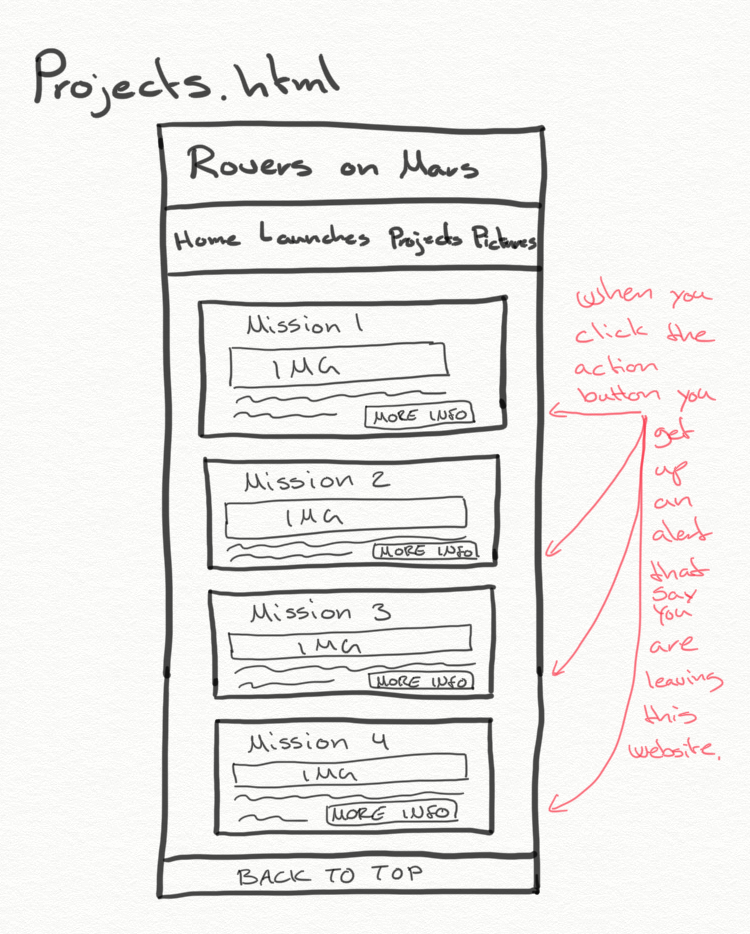 Projects.html
Rovers on Mars
Home Launches Projects Pictures
Mission 1
IMG
MORE INFO
Mission 2
IMG
MORE INFO
Mission 3
IMG
MORE INFO
Mission 4
IMG
MORE INFO
BACK TO TOP
when you
click the
action
button you
get
up
an
alert
that
say
you
are
leaving
this
website.